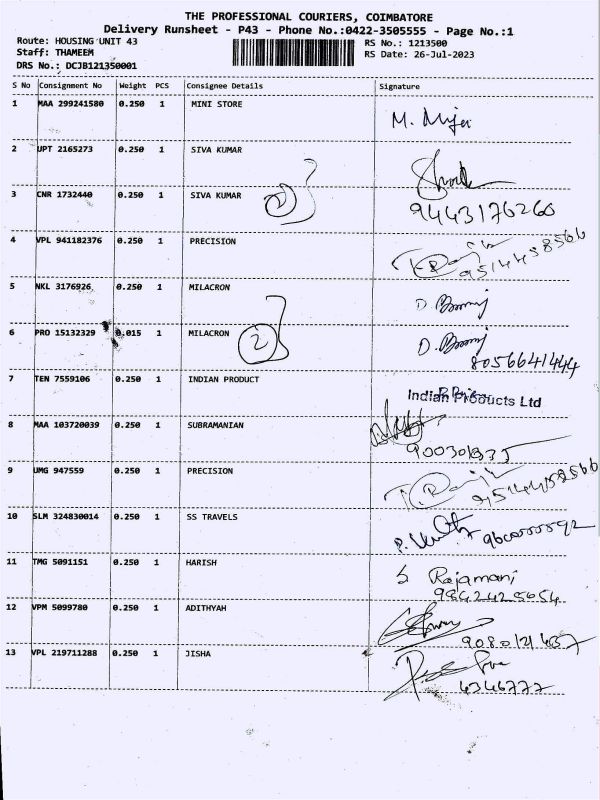 THE PROFESSIONAL COURIERS, COIMBATORE
Delivery Runsheet - P43 - Phone No.:0422-3505555 - Page No.:1
Route: HOUSING UNIT 43 RS No.: 1213500
Staff: THAMEEM RS Date: 26-Jul-2023
DRS No.: DCJB121350001
S No Consignment No Weight PCS Consignee Details Signature
1 MAA 299241580 0.250 1 MINI STORE
M.
2 UPT 2165273 0.250 1 SIVA KUMAR
3 CNR 1732440 0.250 1 SIVA KUMAR 2
9443176260
4 VPL 941182376 0.250 1 PRECISION
9514458566
5 NKL 3176926 0.250 1 MILACRON
D.
6 PRO 15132329 0.015 1 MILACRON 2 D.
8056641444
7 TEN 7559106 0.250 1 INDIAN PRODUCT
Indian Products Ltd
8 MAA 103720039 0.250 1 SUBRAMANIAN
9 UMG 947559 0.250 1 PRECISION
9514458566
10 SLM 324830014 0.250 1 SS TRAVELS
P.
11 TMG 5091151 0.250 1 HARISH
S Rajamani
9842425654
12 VPM 5099780 0.250 1 ADITHYAH
13 VPL 219711288 0.250 1 JISHA
6346777